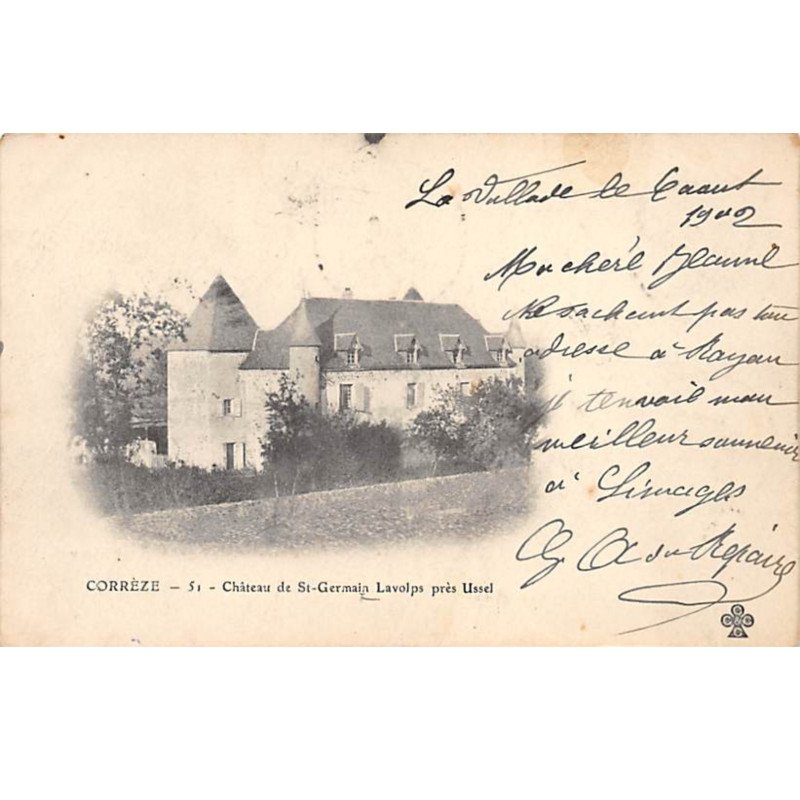 La Vallade le 6 aout
1902
Ma chèrè Jeanne
Ne sachant pas ton
adresse à Royan
j' tenvoie mon
meilleur souvenir
à Limoges
du Repaire
CORRÈZE – 51 - Château de St-Germain Lavolps près Ussel